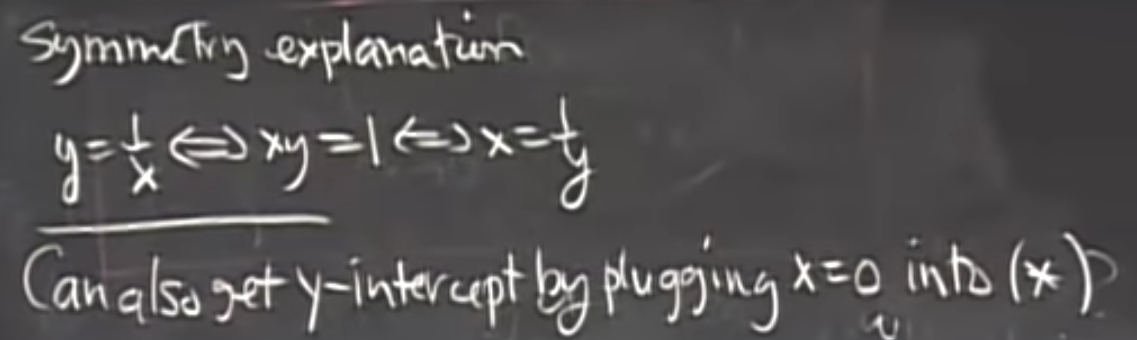 Symmetry explanation
y = 1/x ⇔ xy = 1 ⇔ x = 1/y
Can also get y-intercept by plugging x=0 into (*)